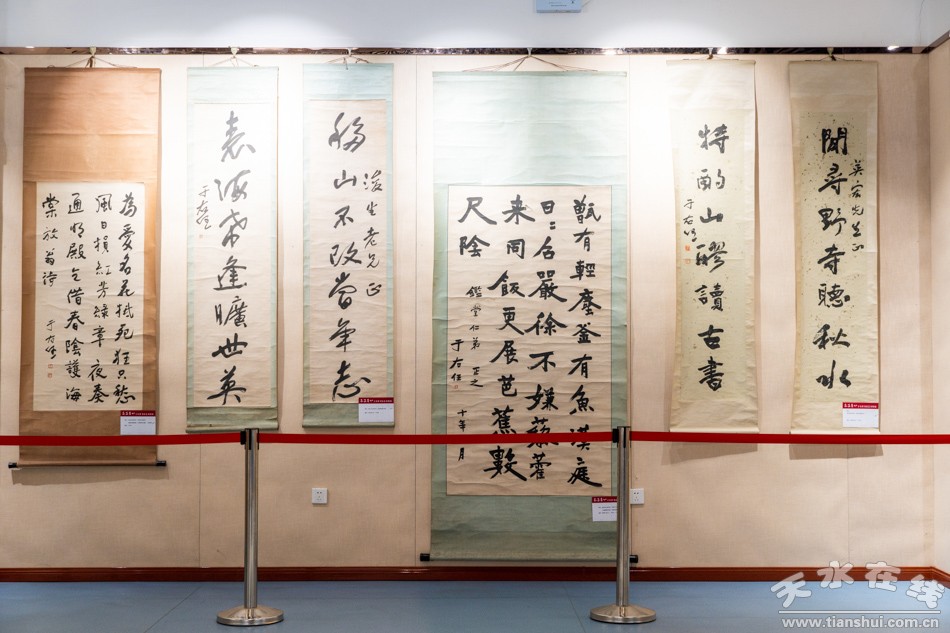 閒尋野寺聽秋水
先生正
特酌山醪讀古書
于右任
甑有輕塵釜有魚漢庭
日〻召嚴徐不嫌藜藿
来同飯更展芭蕉數
尺陰
仁弟 正之
于右任
移山不改當年志
老兄正
表海希逢曠世英
于右任
為愛名花抵死狂只愁
風日損紅芳綠章夜奏
通明殿乞借春陰護海
棠放翁詩
于右任
天水在线
www.tianshui.com.cn